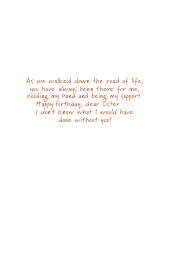 As we walked down the road of life,
you have always been there for me,
holding my hand and being my support.
Happy birthday, dear sister...
I don't know what I would have
done without you!